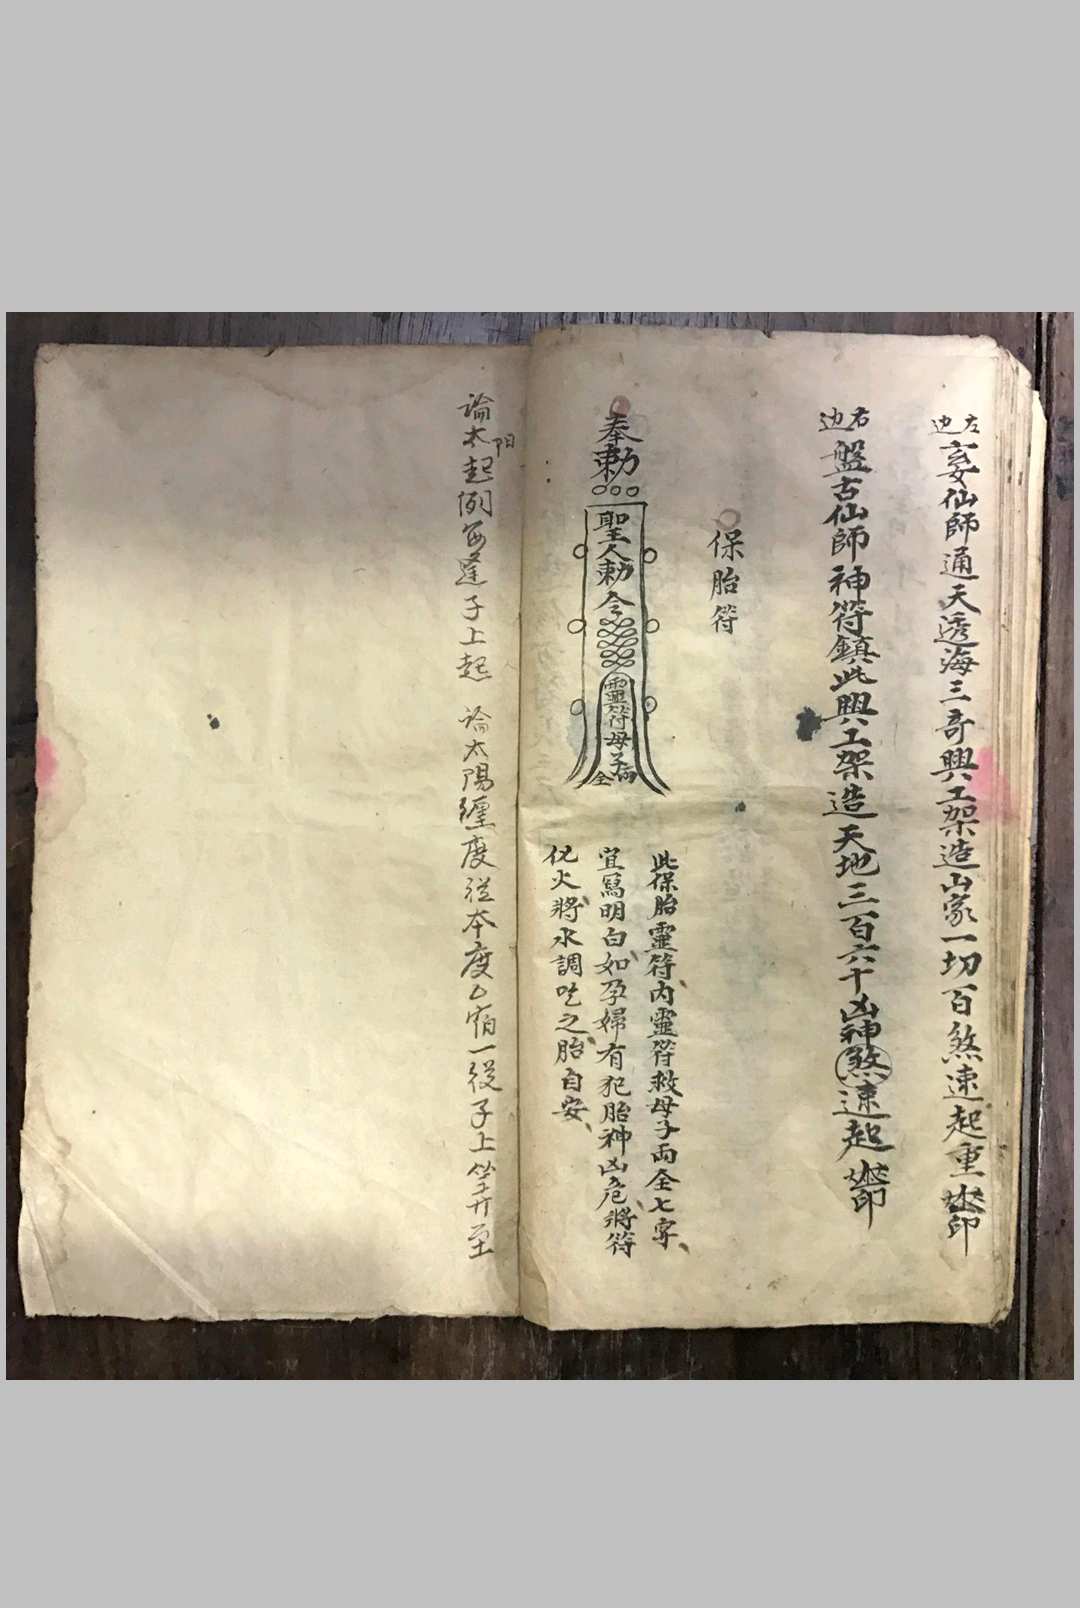 左边 仙師通天透海三奇興工架造山家一切百煞速起重 印
右边 盤古仙師神符鎮此興工架造天地三百六十凶神煞速起 印
保胎符
奉勅
聖人勅令
靈符 母子両全
此保胎靈符内靈符救母子両全七字
宜寫明白如孕婦有犯胎神凶危將符
化火將水調吃之胎自安
論太阳起例 逢子上起 論太陽纏度從本度 宿一從子上竿 至